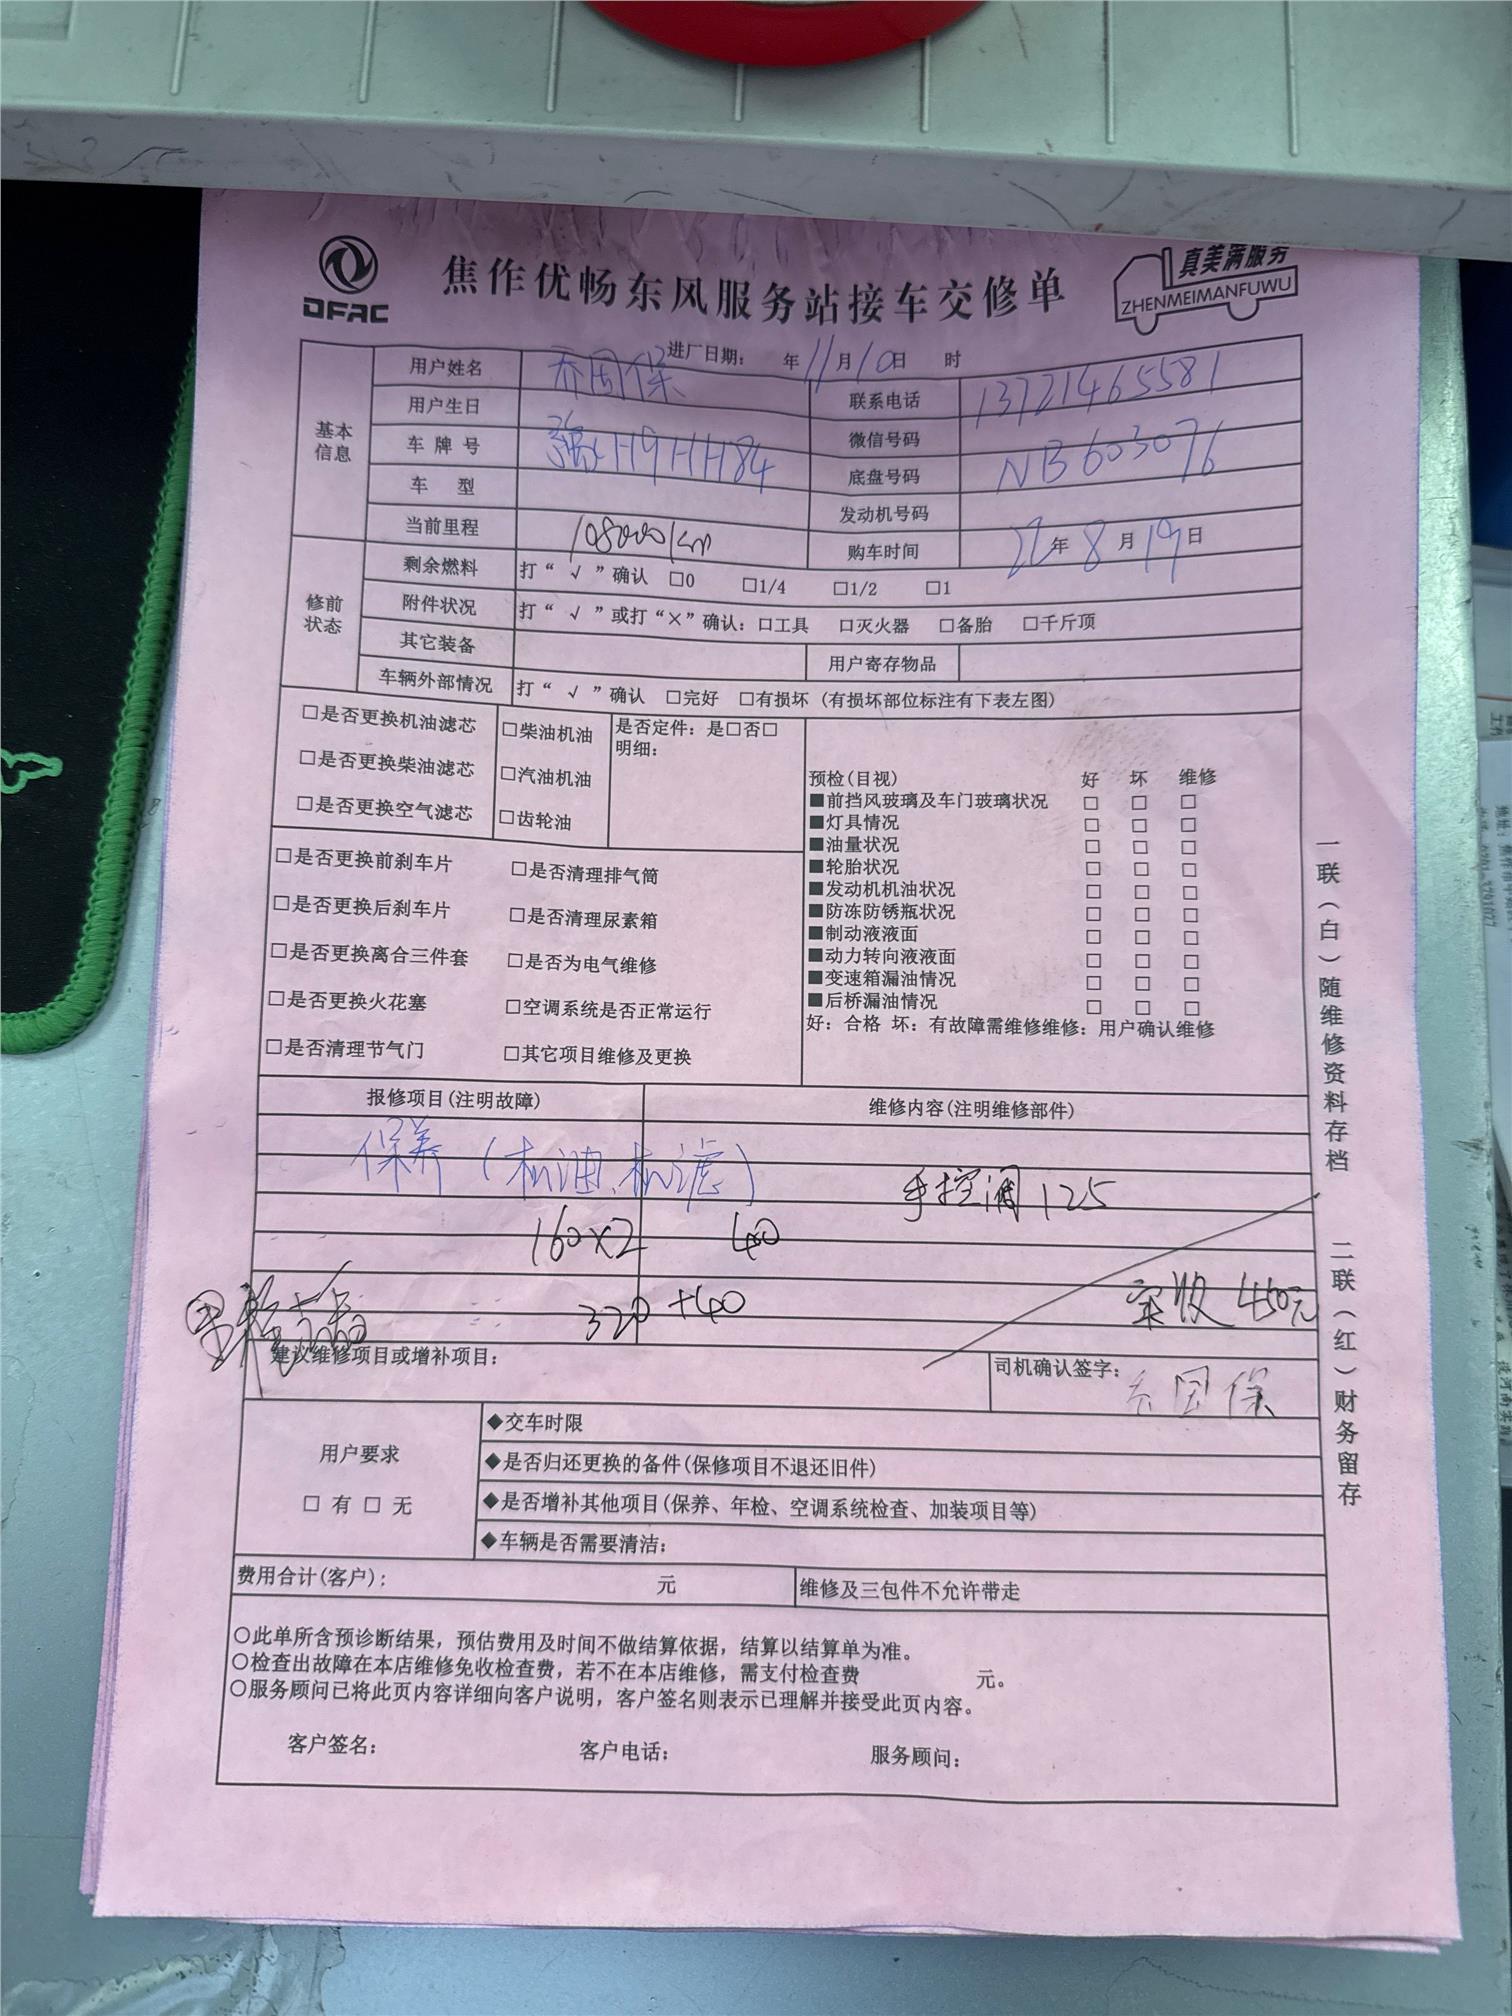 DFAC
焦作优畅东风服务站接车交修单
真美满服务
ZHENMEIMANFUWU
进厂日期: 年 11月10日 时
基本信息
用户姓名 乔国保 联系电话 13721465581
用户生日 微信号码
车牌号 H9HH84 底盘号码 NB603076
车 型 发动机号码
当前里程 108000km 购车时间 22年8月19日
修前状态
剩余燃料 打“√”确认 □0 □1/4 □1/2 □1
附件状况 打“√”或打“×”确认: □工具 □灭火器 □备胎 □千斤顶
其它装备 用户寄存物品
车辆外部情况 打“√”确认 □完好 □有损坏 (有损坏部位标注有下表左图)
□是否更换机油滤芯 □柴油机油 是否定件: 是□否□
明细:
□是否更换柴油滤芯 □汽油机油
□是否更换空气滤芯 □齿轮油
□是否更换前刹车片 □是否清理排气筒
□是否更换后刹车片 □是否清理尿素箱
□是否更换离合三件套 □是否为电气维修
□是否更换火花塞 □空调系统是否正常运行
□是否清理节气门 □其它项目维修及更换
预检(目视) 好 坏 维修
■前挡风玻璃及车门玻璃状况 □ □ □
■灯具情况 □ □ □
■油量状况 □ □ □
■轮胎状况 □ □ □
■发动机机油状况 □ □ □
■防冻防锈瓶状况 □ □ □
■制动液液面 □ □ □
■动力转向液液面 □ □ □
■变速箱漏油情况 □ □ □
■后桥漏油情况 □ □ □
好: 合格 坏: 有故障需维修维修: 用户确认维修
报修项目(注明故障) 维修内容(注明维修部件)
保养(机油、机滤)
手控阀 125
160×2 40
320+40
实收 450元
建议维修项目或增补项目:
司机确认签字: 乔国保
用户要求
□ 有 □ 无
◆交车时限
◆是否归还更换的备件(保修项目不退还旧件)
◆是否增补其他项目(保养、年检、空调系统检查、加装项目等)
◆车辆是否需要清洁:
费用合计(客户): 元 维修及三包件不允许带走
○此单所含预诊断结果，预估费用及时间不做结算依据，结算以结算单为准。
○检查出故障在本店维修免收检查费，若不在本店维修，需支付检查费 元。
○服务顾问已将此页内容详细向客户说明，客户签名则表示已理解并接受此页内容。
客户签名: 客户电话: 服务顾问:
一联(白)随维修资料存档
二联(红)财务留存